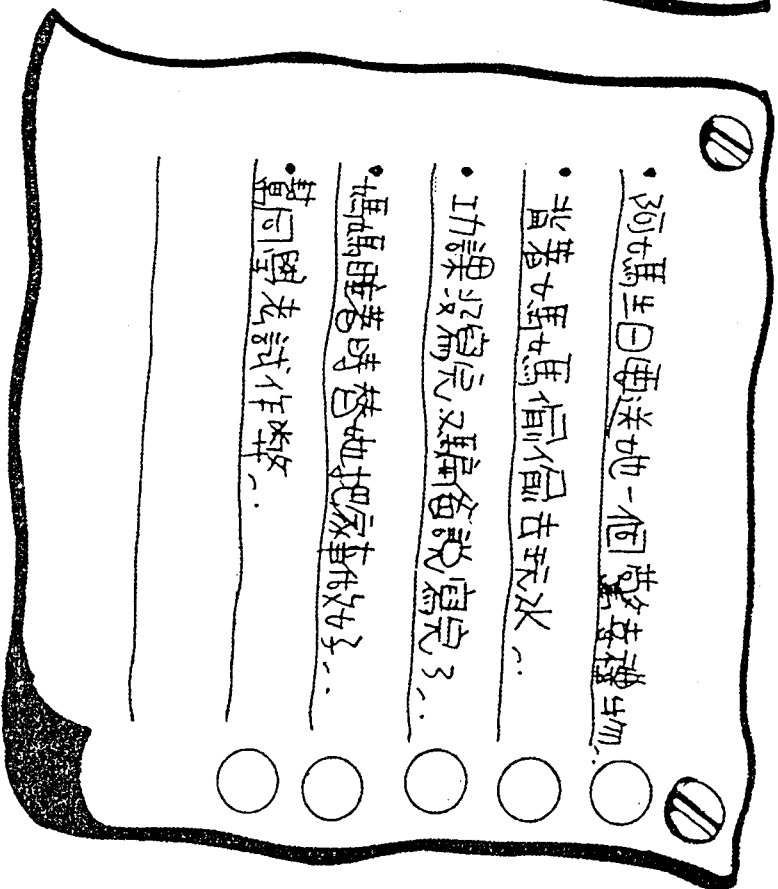 • 媽媽生日要送她一個驚喜禮物…
• 背著媽媽偷偷去玩水…
• 功課沒寫完又騙爸說寫完了…
• 媽媽睡著時替她把家事做好…
• 幫同學考試作弊…